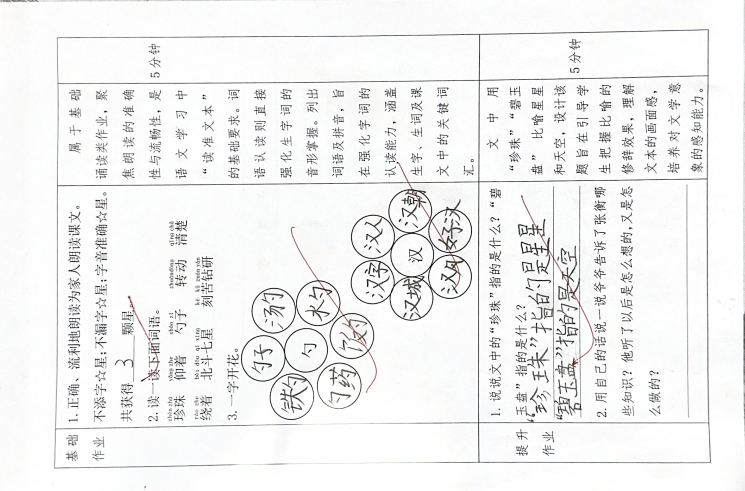 基础作业
1. 正确、流利地朗读为家人朗读课文。
不添字☆星；不漏字☆星；字音准确☆星。
共获得 3 颗星。
2. 读一读下面词语。
zhēn zhū yǎng zhe sháo zi zhuàndòng qīng chǔ
珍珠 仰着 勺子 转动 清楚
rào zhe běi dǒu qī xīng kè kǔ zuān yán
绕着 北斗七星 刻苦钻研
3. 一字开花。
勺
勺子
汤勺
水勺
饭勺
勺药
铁勺
汉
汉字
汉人
汉朝
好汉
汉城
属于基础
诵读类作业，聚
焦朗读的准确
性与流畅性，是
语文学习中
“读准文本”
的基础要求。词
语认读则直接
强化生字词的
音形掌握。列出
词语及拼音，旨
在强化字词的
认读能力，涵盖
生字、生词及课
文中的关键词
汇。
5分钟
提升作业
1. 说说文中的“珍珠”指的是什么？“碧
玉盘”指的是什么？
“珍珠”指的是星星
“碧玉盘”指的是天空
2. 用自己的话说一说爷爷告诉了张衡哪
些知识？他听了以后是怎么想的，又是怎
么做的？
文中用
“珍珠”“碧玉
盘”比喻星星
和天空，设计该
题旨在引导学
生把握比喻的
修辞效果，理解
文本的画面感，
培养对文学意
象的感知能力。
5分钟